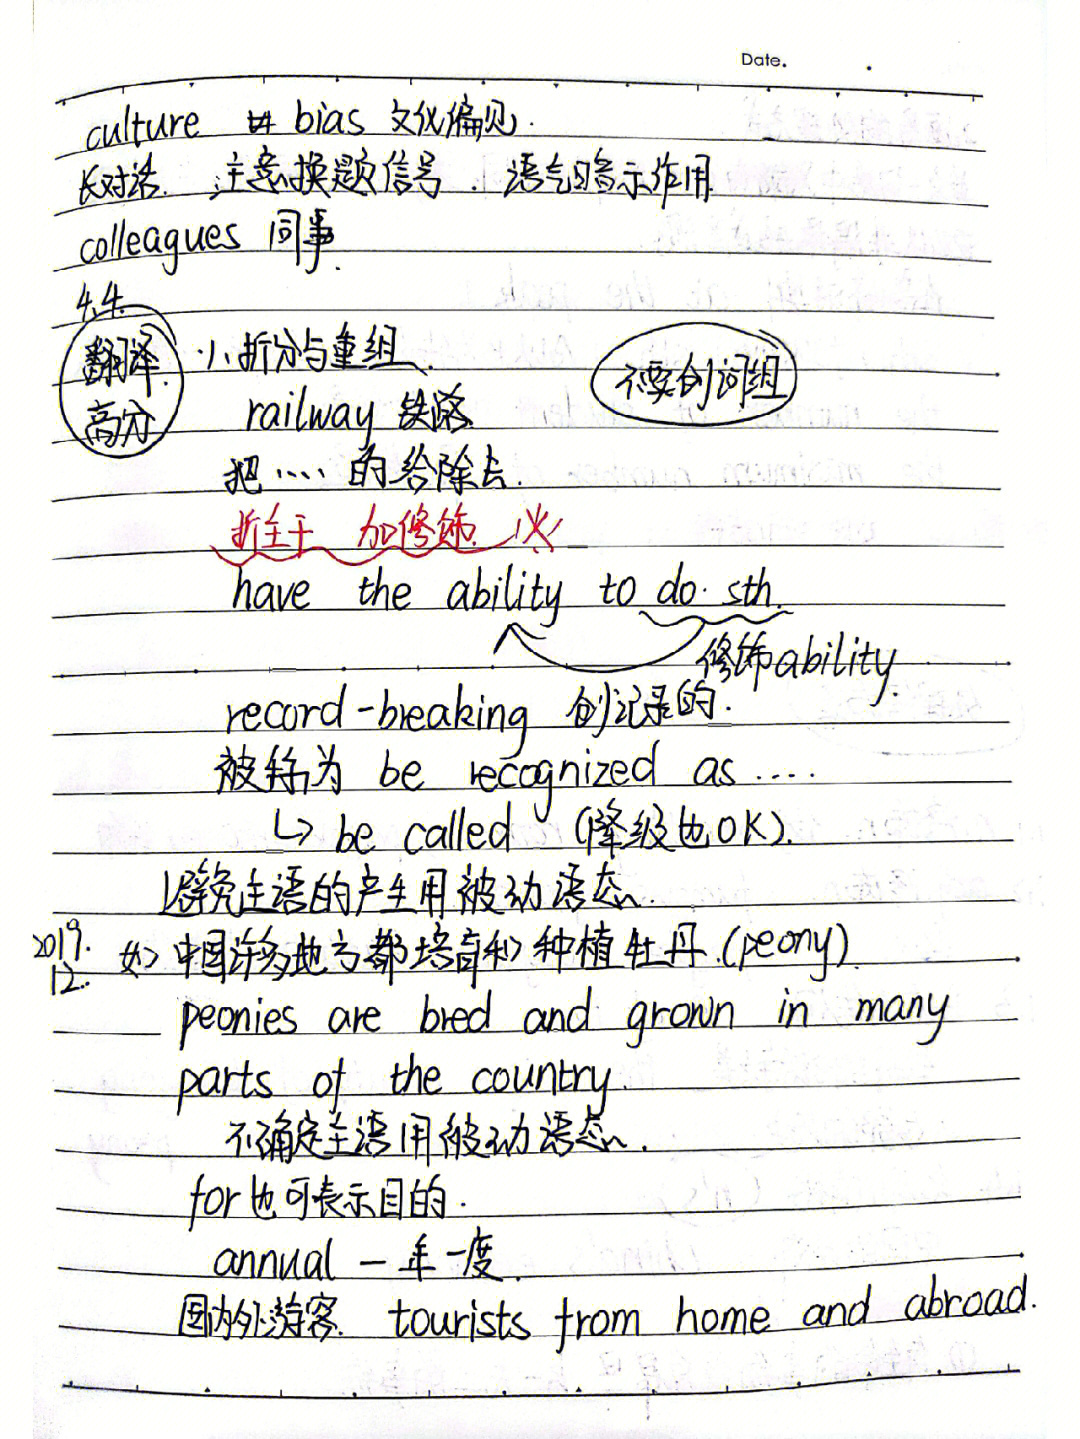 Date.
culture bias 文化偏见.
长对话. 注意换题信号. 语气暗示作用
colleagues 同事.
4.4.
翻译高分 小折分与重组. 不要创词组
railway 铁路
把.... 的给除去.
折主干 加修饰.
have the ability to do sth.
修饰ability.
record-breaking 创记录的.
被称为 be recognized as ....
↳ be called (降级也OK).
避免主语的产生用被动语态.
2019.12. 如 中国许多地方都培育和种植牡丹.(peony)
peonies are bred and grown in many
parts of the country.
不确定主语用被动语态.
for也可表示目的.
annual 一年一度.
国内外游客. tourists from home and abroad.